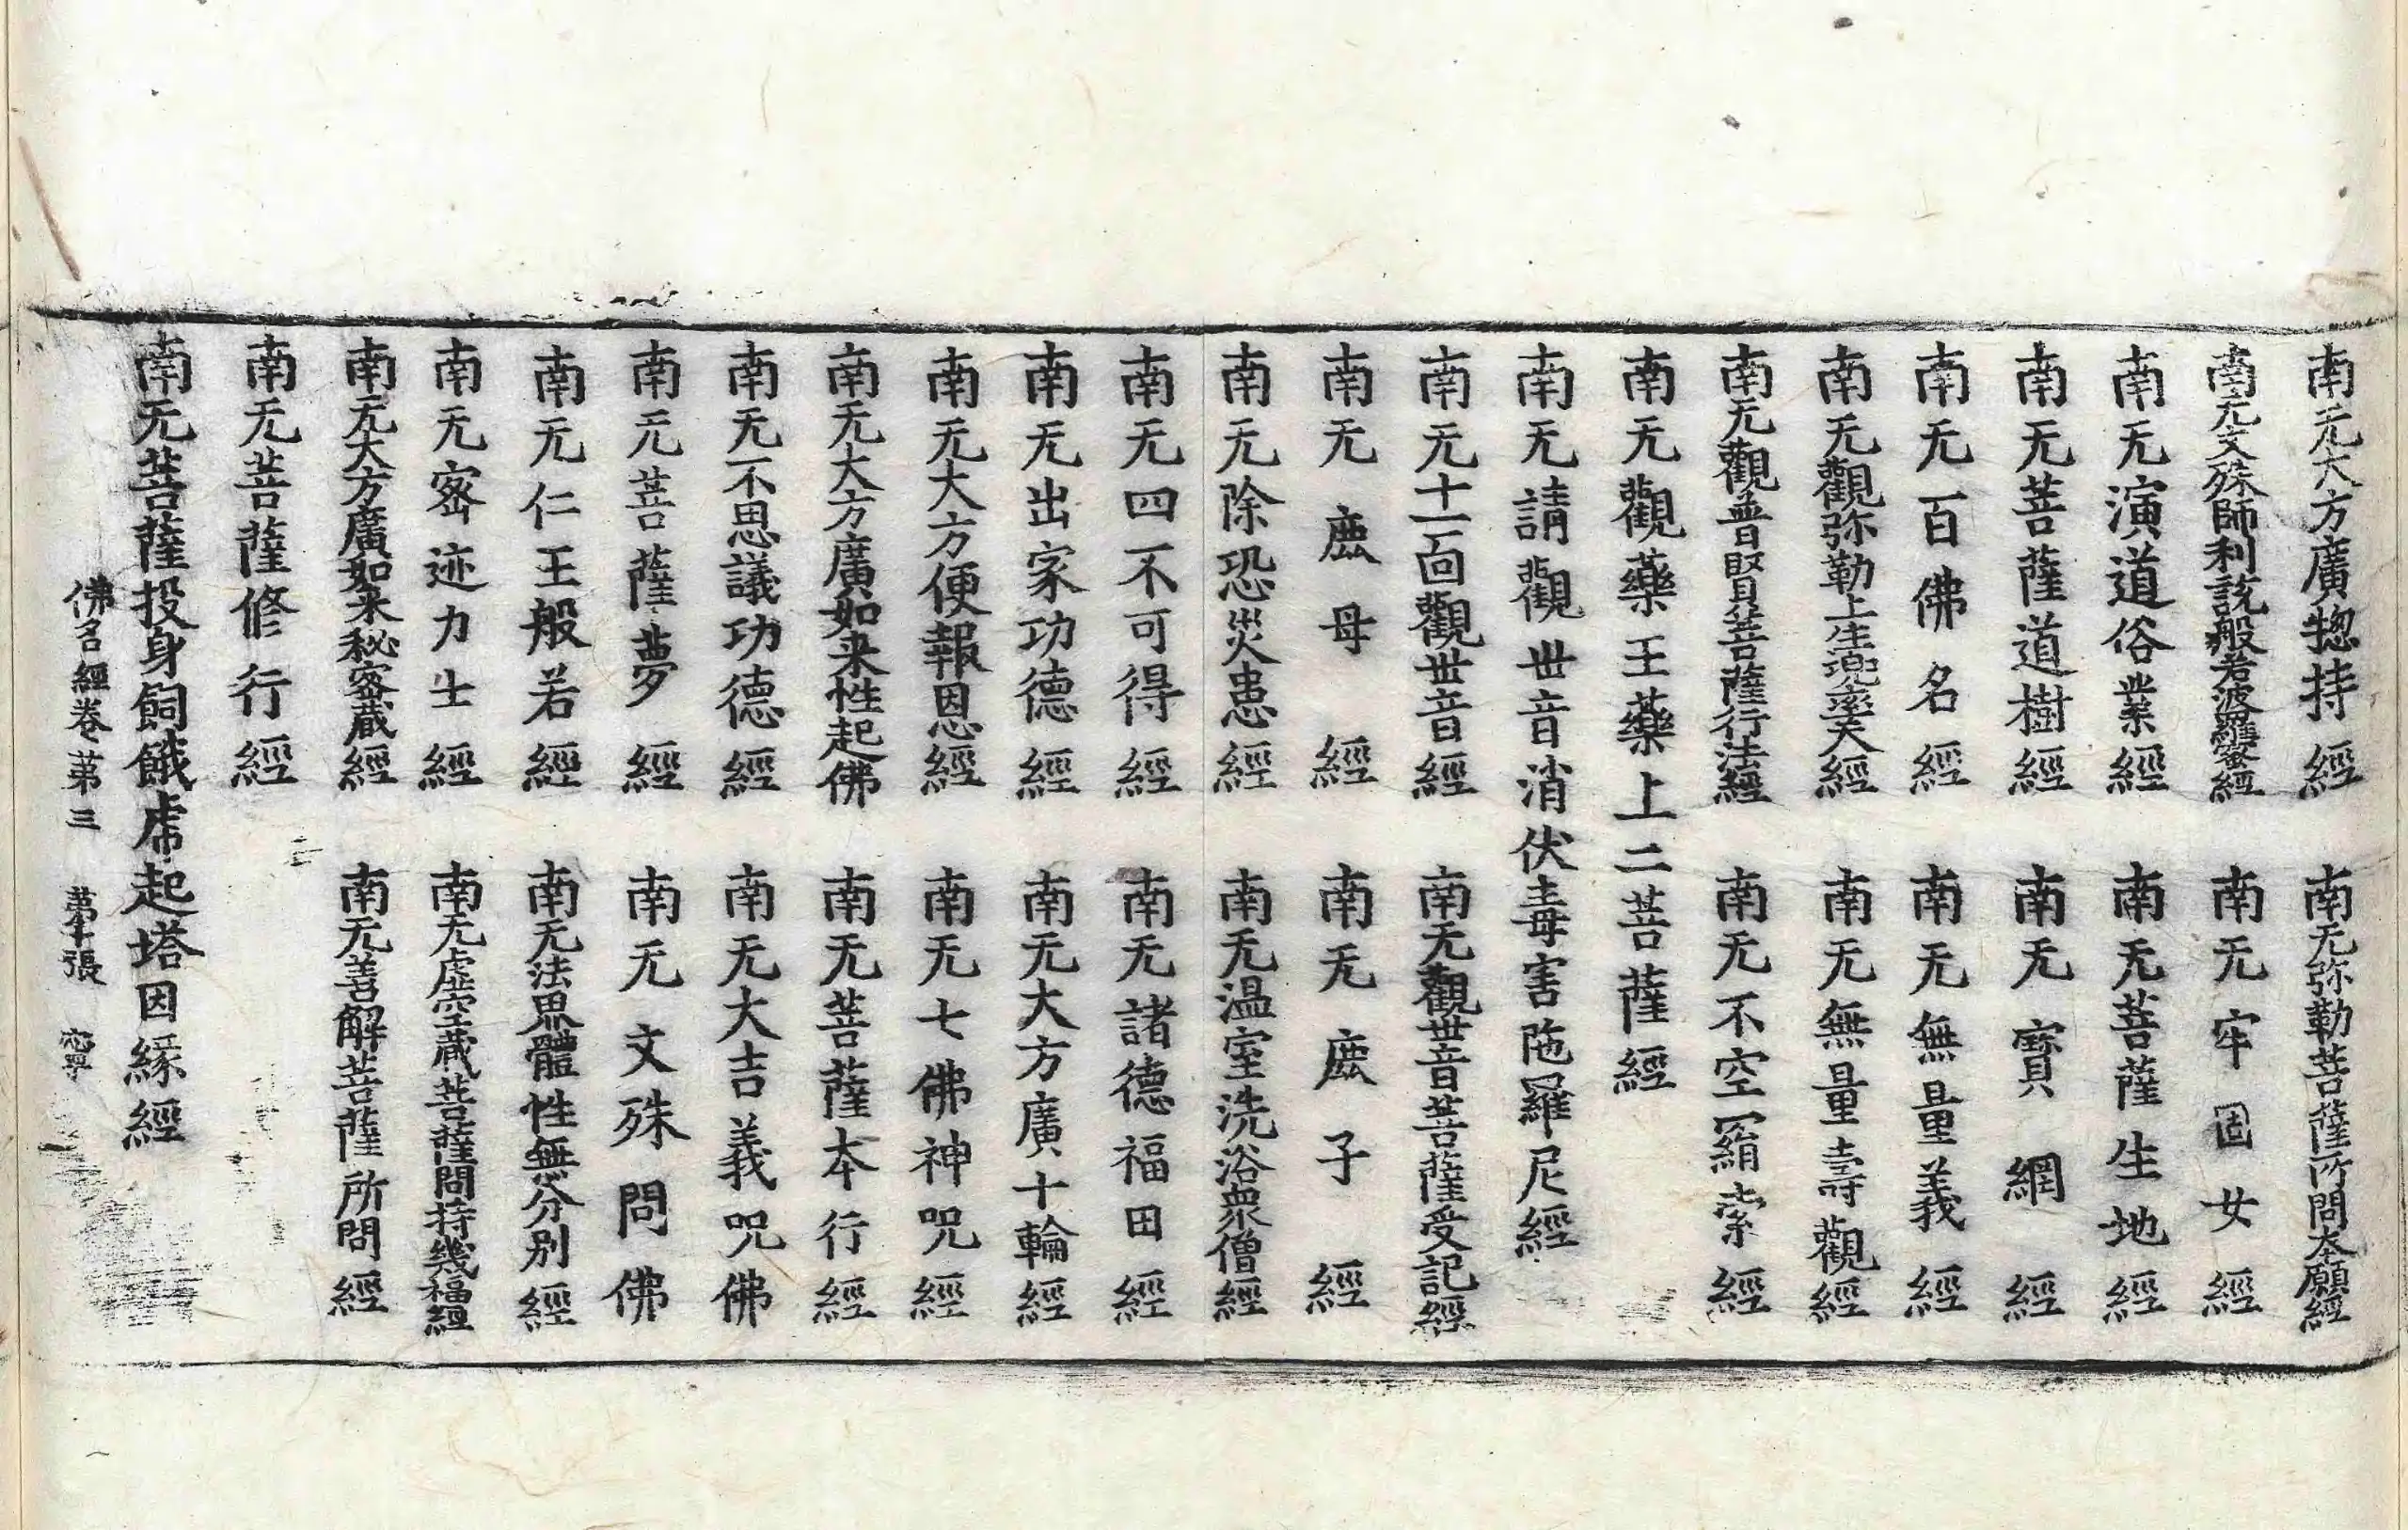 南无大方廣惣持經　南无弥勒菩薩所問本願經
南无文殊師利說般若波羅蜜經　南无牢固女經
南无演道俗業經　南无菩薩生地經
南无菩薩道樹經　南无寶網經
南无百佛名經　南无無量義經
南无觀弥勒上生兜率天經　南无無量壽觀經
南无觀普賢菩薩行法經　南无不空羂索經
南无觀藥王藥上二菩薩經
南无請觀世音消伏毒害陁羅尼經
南无十一面觀世音經　南无觀世音菩薩受記經
南无鹿母經　南无鹿子經
南无除恐災患經　南无温室洗浴衆僧經
南无四不可得經　南无諸德福田經
南无出家功德經　南无大方廣十輪經
南无大方便報恩經　南无七佛神呪經
南无大方廣如来性起佛　南无菩薩本行經
南无不思議功德經　南无大吉義呪佛
南无菩薩夢經　南无文殊問佛
南无仁王般若經　南无法界體性無分別經
南无密迹力士經　南无虛空蔵菩薩問持幾福經
南无大方廣如来秘密蔵經　南无善解菩薩所問經
南无菩薩修行經
南无菩薩投身飼餓虎起塔因緣經
佛名經卷第三　第　張